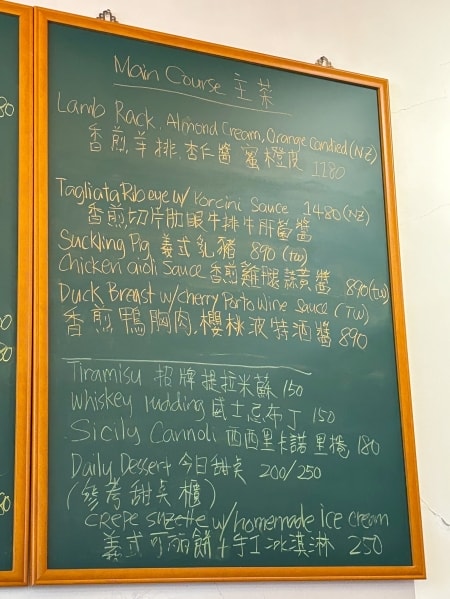 Main Course 主菜
Lamb Rack. Almond Cream, Orange Candied (NZ)
香煎羊排.杏仁醬 蜜橙皮 1280
Tagliata Ribeye w/ Porcini Sauce 1480 (NZ)
香煎切片肋眼牛排牛肝菌醬
Suckling Pig 義式乳豬 890 (TW)
Chicken aioli Sauce 香煎雞腿蒜黃醬 890 (TW)
Duck Breast w/cherry Porto Wine Sauce (TW)
香煎鴨胸肉,櫻桃波特酒醬 890
Tiramisu 招牌提拉米蘇 150
Whiskey Pudding 威士忌布丁 150
Sicily Cannoli 西西里卡諾里捲 180
Daily Dessert 今日甜点 200/250
(參考甜点櫃)
crepe suzette w/homemade Ice cream
義式可麗餅+手工冰淇淋 250